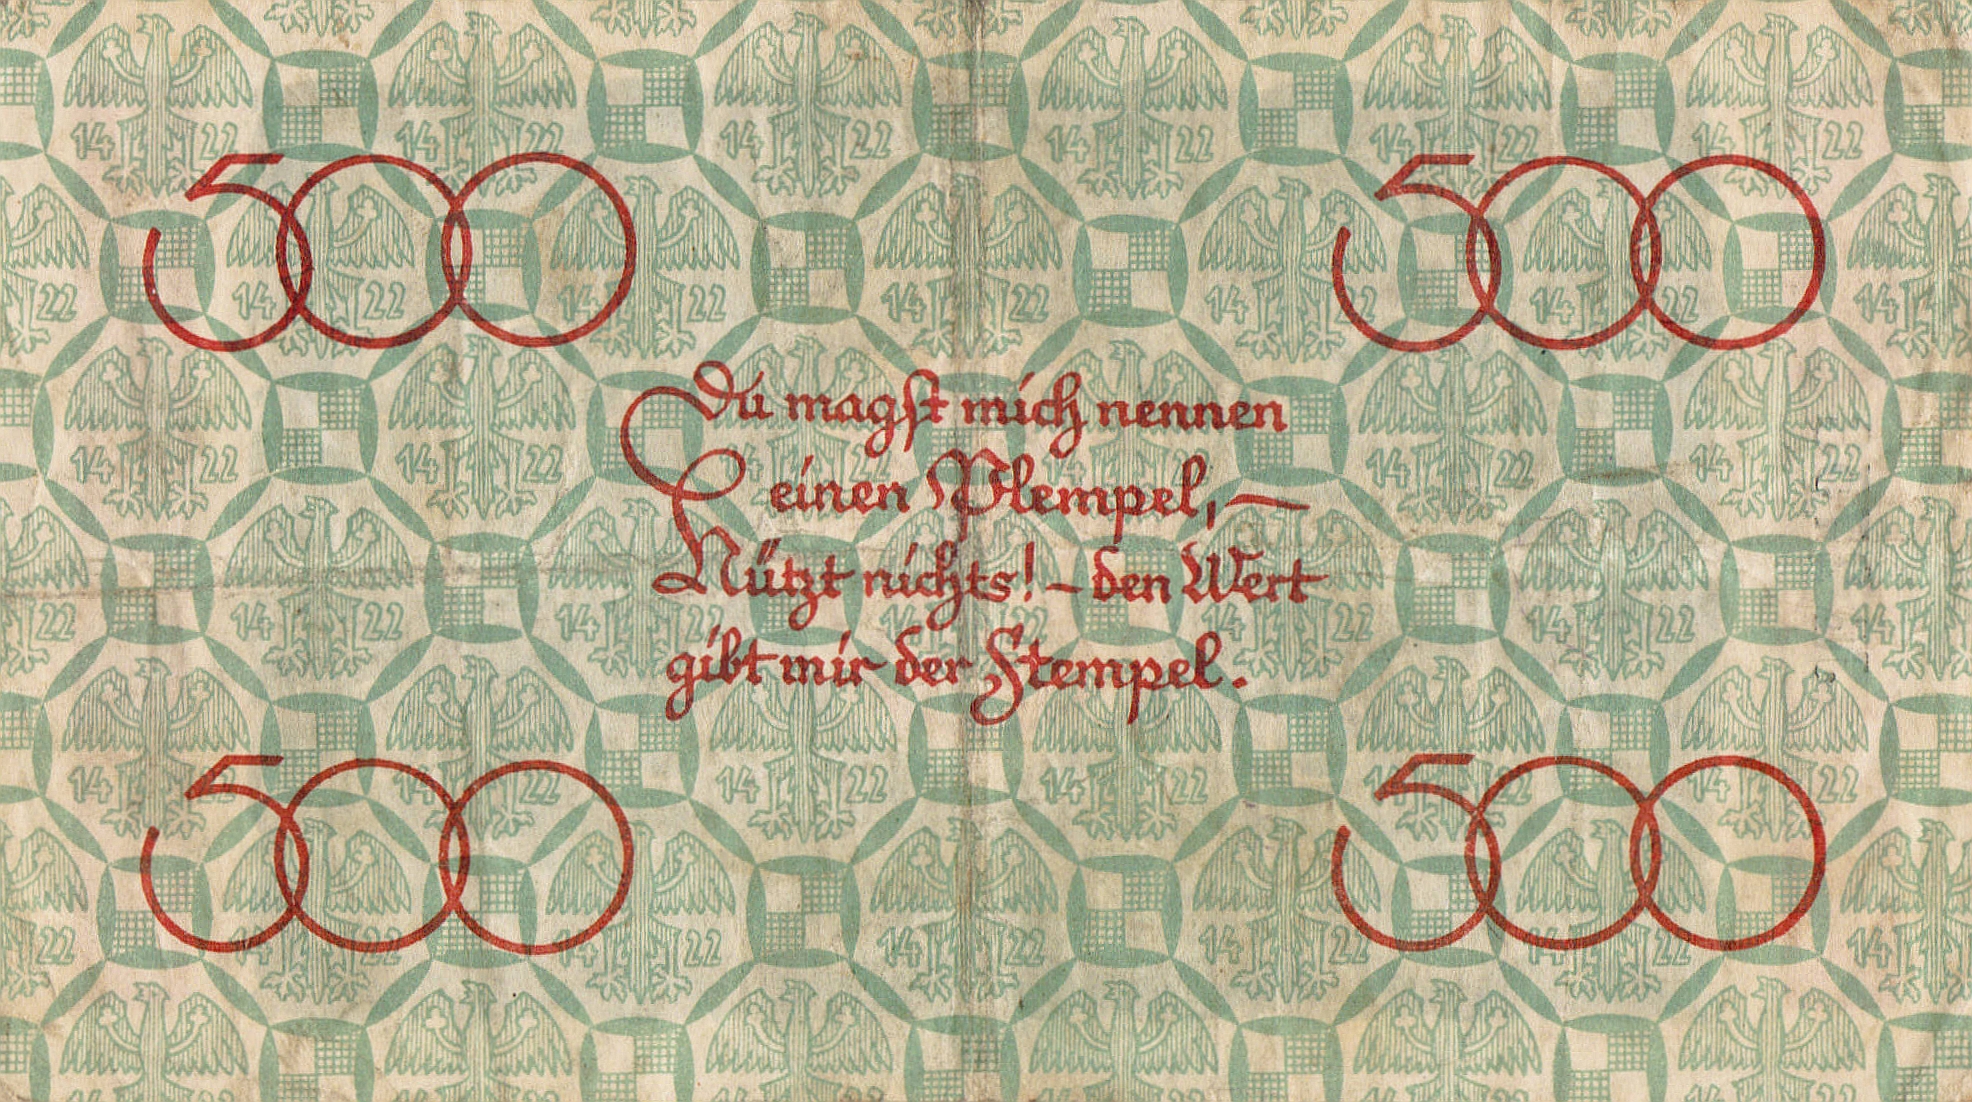 500 500
Du magst mich nennen
einen Plempel, —
Nützt nichts! – den Wert
gibt mir der Stempel.
500 500
14 22